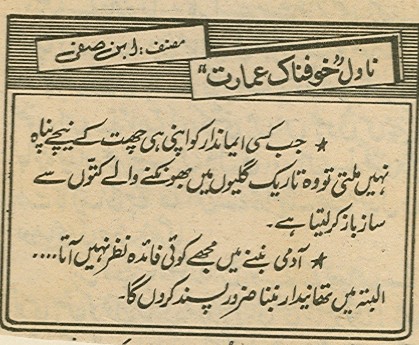 ناول "خوفناک عمارت"
مصنف: ابن صفی
★ جب کسی ایماندار کو اپنی ہی چھت کے نیچے پناہ
نہیں ملتی تو وہ تاریک گلیوں میں بھونکنے والے کتّوں سے
ساز باز کر لیتا ہے۔
★ آدمی بننے میں مجھے کوئی فائدہ نظر نہیں آتا....
البتہ میں تھانیدار بننا ضرور پسند کروں گا۔